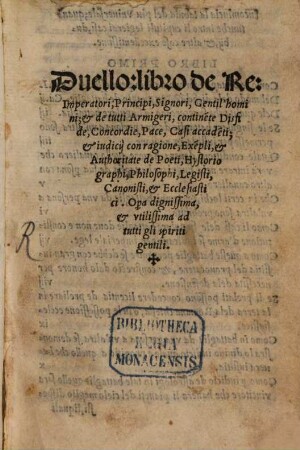 Duello: libro de Re:
Imperatori, Principi, Signori, Gentil'homi
ni; & de tutti Armigeri, continẽte Disfi
de, Concordie, Pace, Casi accadẽti; 
& iudicij con ragione, Exẽpli, &
Authoritate de Poeti, Hystorio
graphi, Philosophi, Legisti,
Canonisti, & Ecclesiasti
ci. Opa dignissima,
& vtilissima ad
tutti gli spiriti
gentili.
R
BIBLIOTHECA
REGIA
MONACENSIS